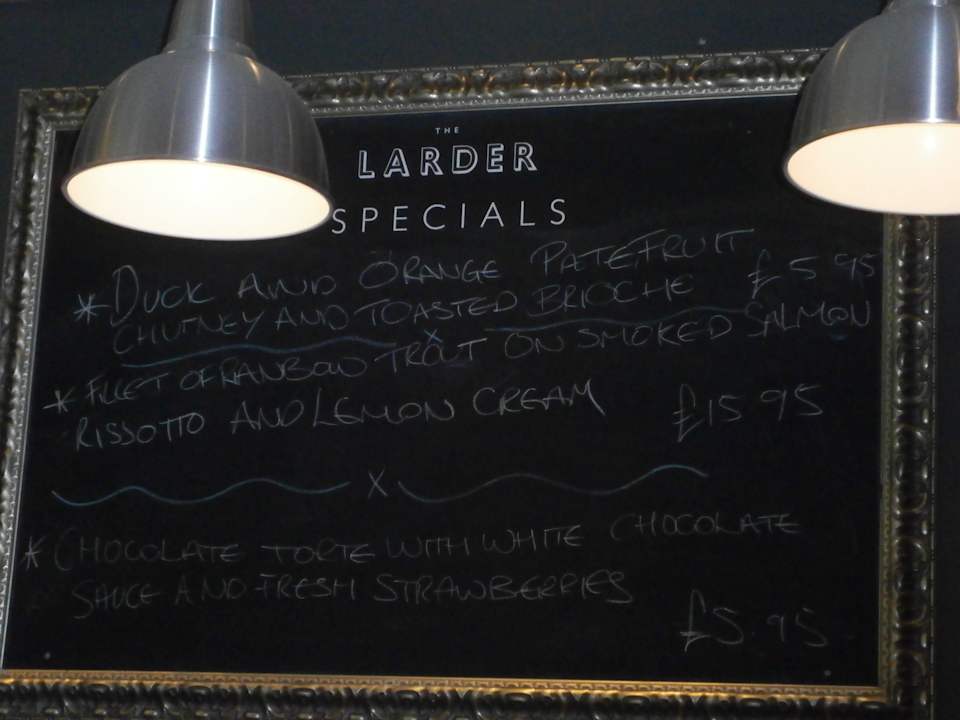 THE
LARDER
SPECIALS
* DUCK AND ORANGE PATE, FRUIT
CHUTNEY AND TOASTED BRIOCHE £5.95
x
* FILLET OF RANBOW TROUT ON SMOKED SALMON
RISSOTTO AND LEMON CREAM £15.95
X
* CHOCOLATE TORTE WITH WHITE CHOCOLATE
SAUCE AND FRESH STRAWBERRIES
£5.95